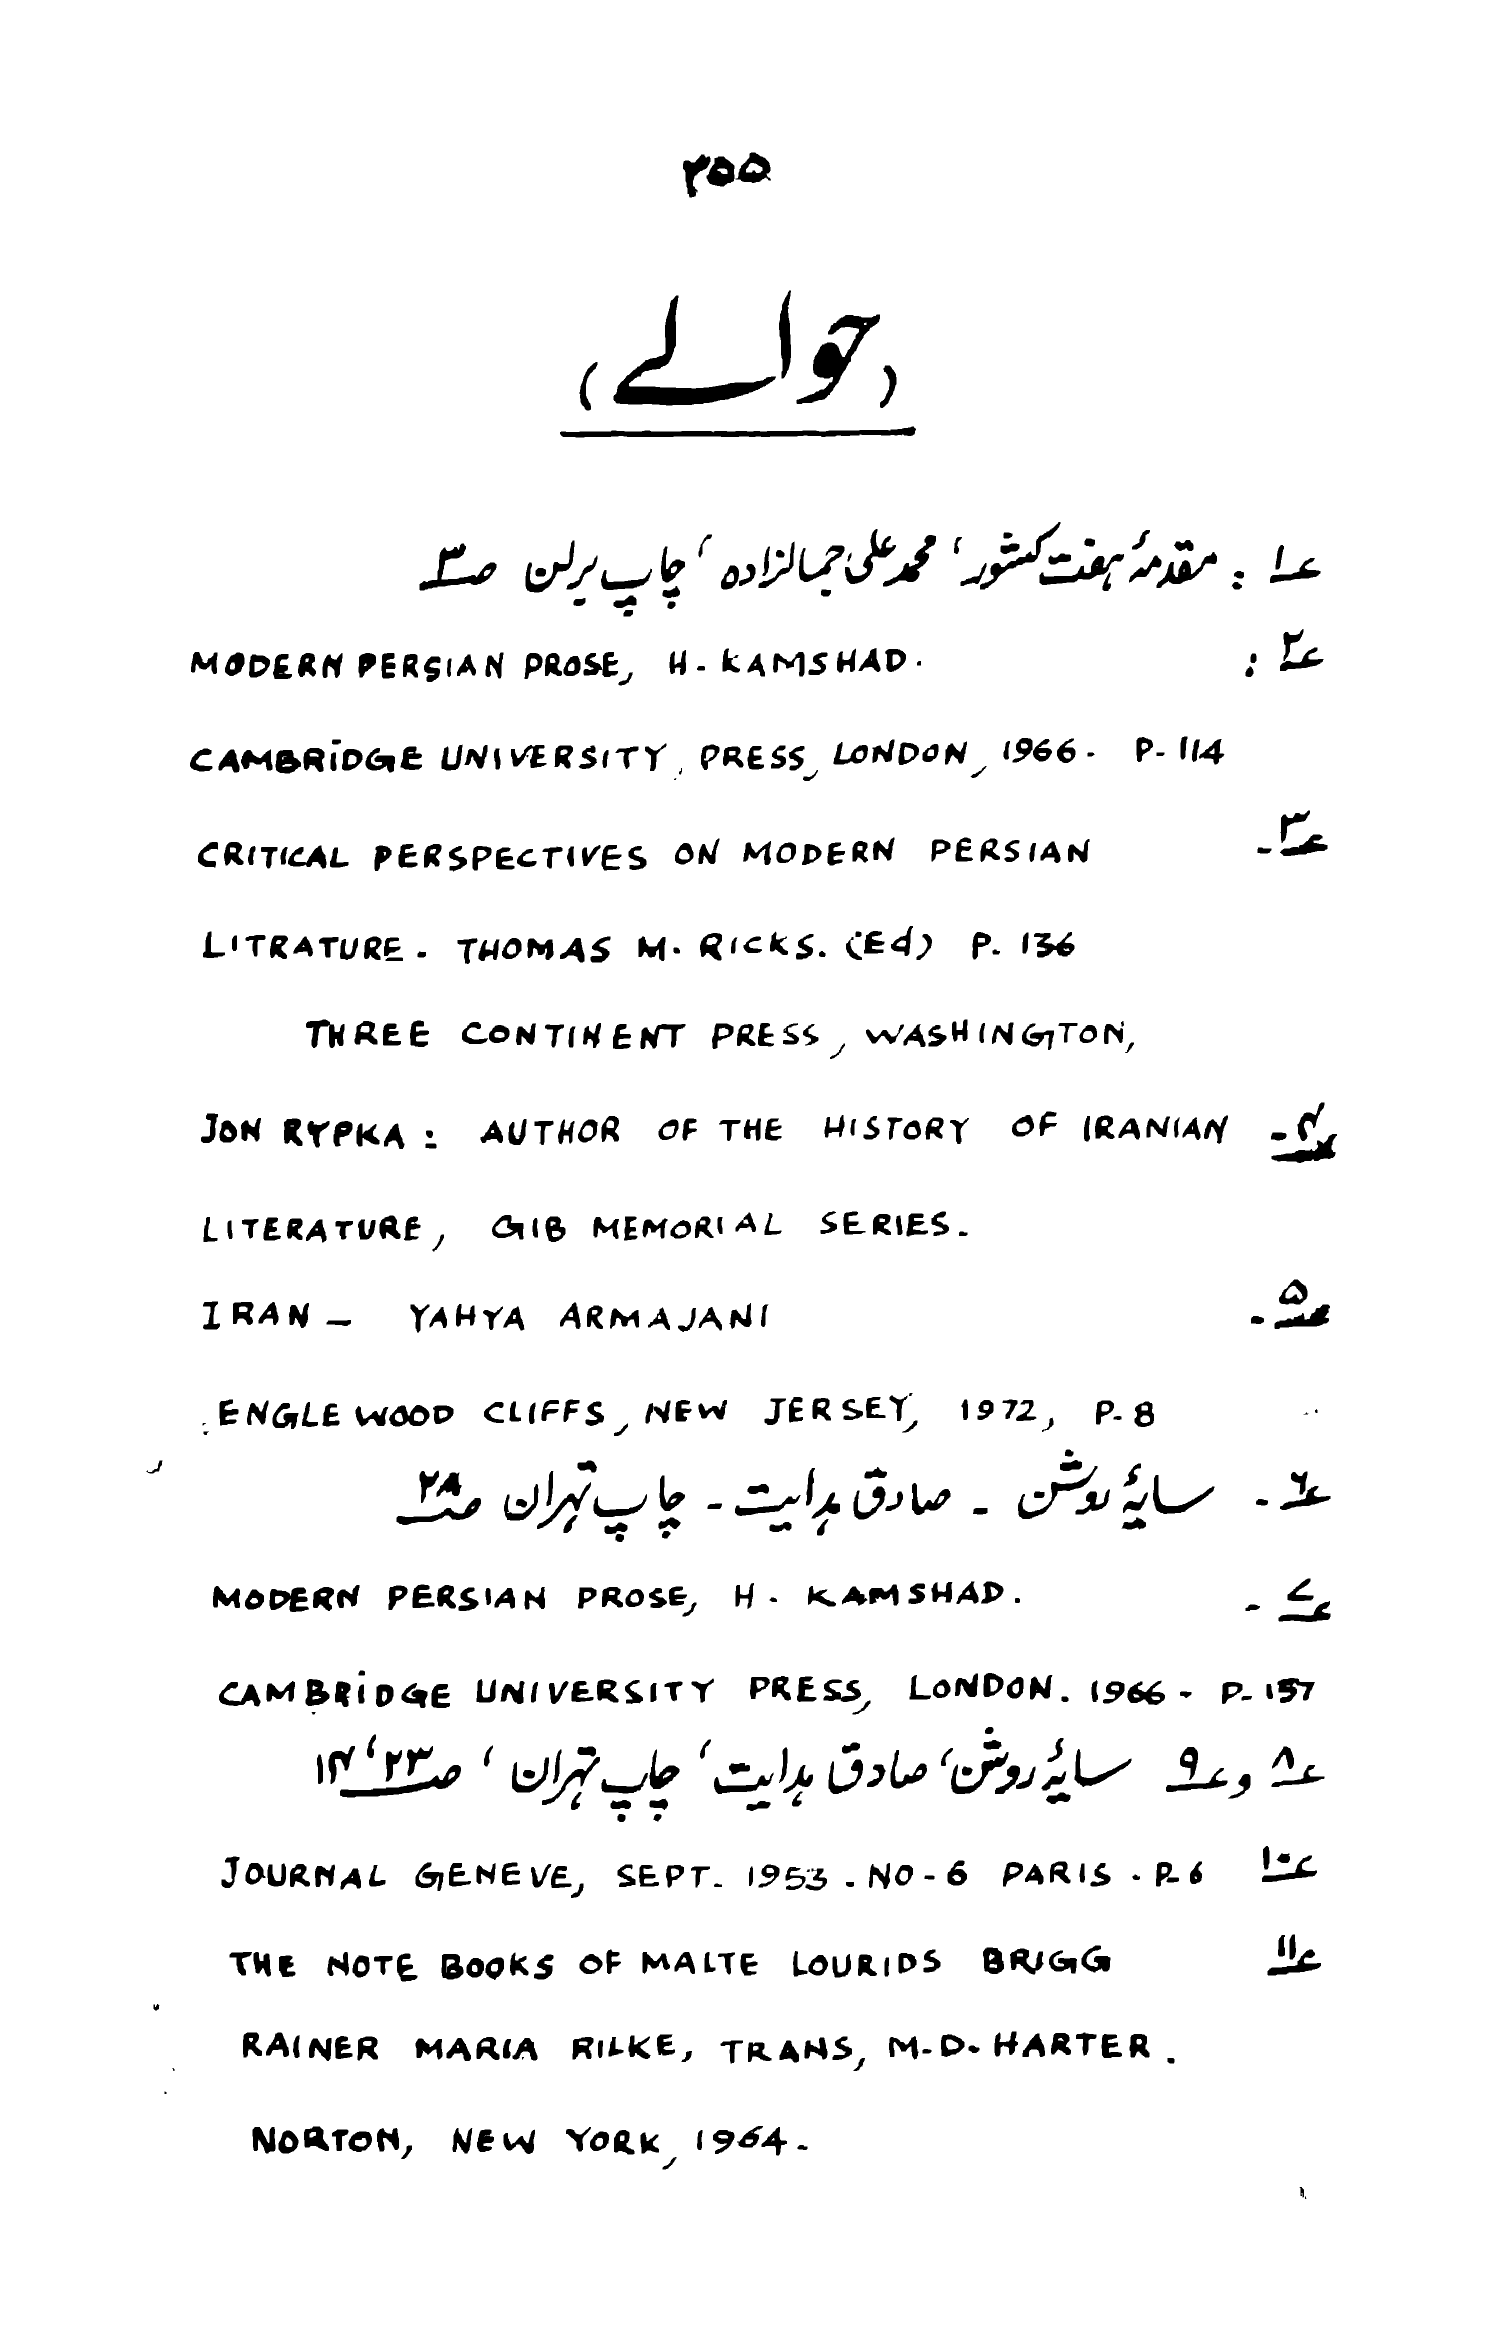 ۲۵۵
(حوالے)
؏۱ : مقدمۂ ہفت کشور، محمد علی جمالزادہ، چاپ برلن صـ۳
؏۲ : MODERN PERSIAN PROSE, H. KAMSHAD.
CAMBRIDGE UNIVERSITY, PRESS, LONDON, 1966- P-114
؏۳- CRITICAL PERSPECTIVES ON MODERN PERSIAN
LITRATURE. THOMAS M. RICKS. (Ed) P. 136
THREE CONTINENT PRESS, WASHINGTON,
؏۴- JON RYPKA: AUTHOR OF THE HISTORY OF IRANIAN
LITERATURE, GIB MEMORIAL SERIES.
؏۵- IRAN - YAHYA ARMAJANI
ENGLEWOOD CLIFFS, NEW JERSEY, 1972, P-8
؏۶- سایۂ روشن - صادق ہدایت - چاپ تہران صـ۲۸
؏۷- MODERN PERSIAN PROSE, H. KAMSHAD.
CAMBRIDGE UNIVERSITY PRESS, LONDON. 1966- P-157
؏۸ و ؏۹ سایۂ روشن، صادق ہدایت، چاپ تہران، صـ۲۳، ۱۴
؏۱۰ JOURNAL GENEVE, SEPT. 1953. NO-6 PARIS. P-6
؏۱۱ THE NOTE BOOKS OF MALTE LOURIDS BRIGG
RAINER MARIA RILKE, TRANS, M.D. HARTER.
NORTON, NEW YORK, 1964.